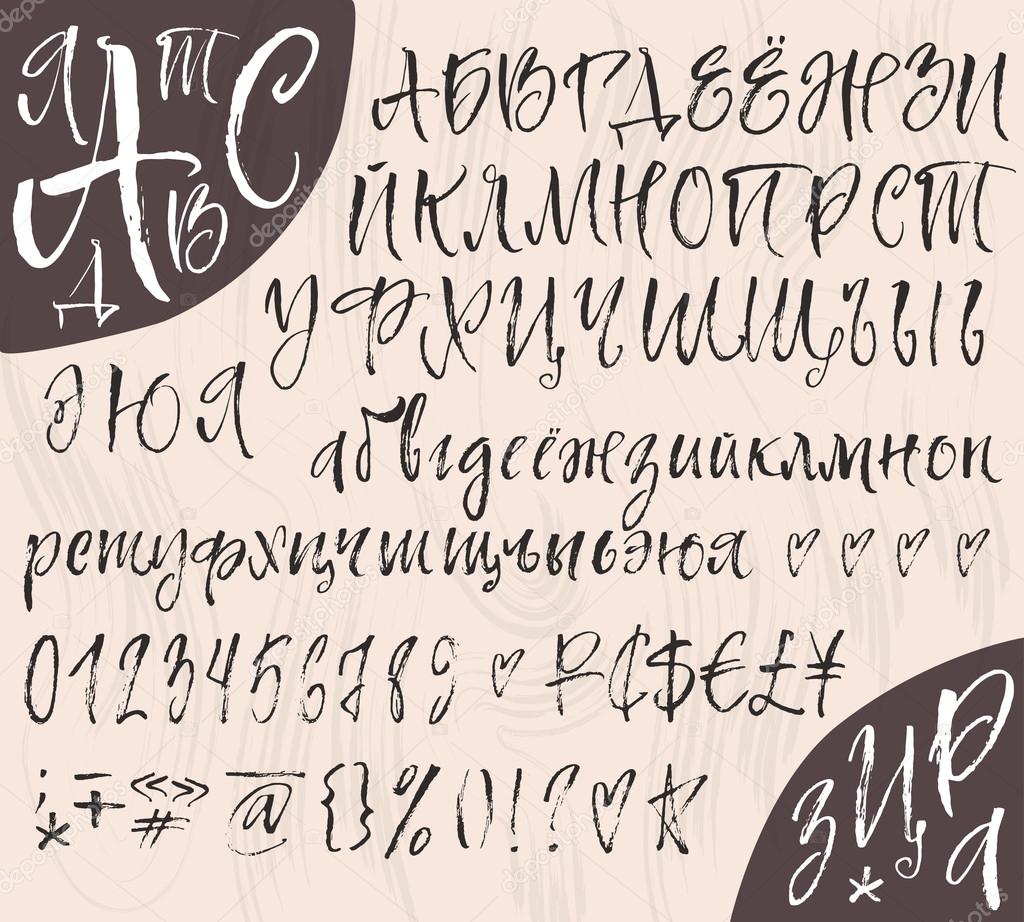 Я т
А С
В
Д
АБВГДЕЁЖЗИ
ЙКЛМНОПРСТ
УФХЦЧШЩЪЫЬ
ЭЮЯ
абвгдеёжзийклмноп
рстуфхцчшщъыьэюя ♡ ♡ ♡ ♡
0123456789 ♡ ₽₵$€£¥
; * + « » # @ { } % ( ) ! ? ♡ ☆
З Ц Р
* а